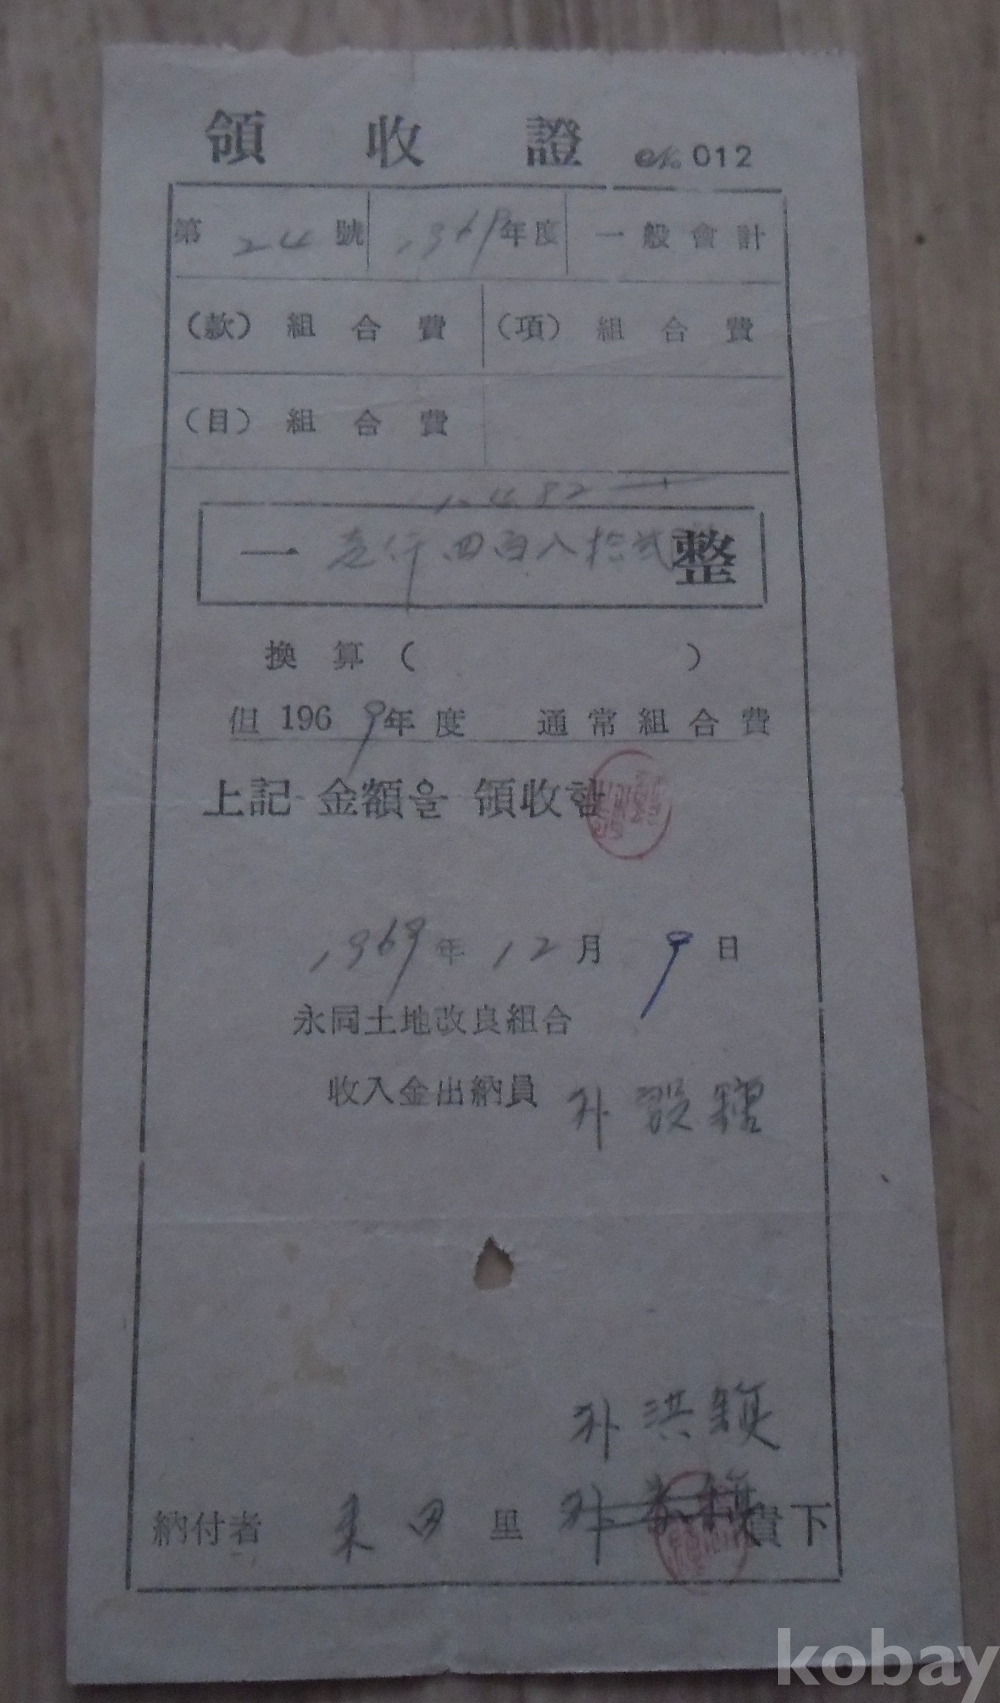 領收證 № 012
第 24 號 1969年度 一般會計
(款) 組合費 (項) 組合費
(目) 組合費
1,482
一 壱仟四百八拾弍 整
換算 ( )
但 1969年度 通常組合費
上記 金額을 領收함
1969年 12月 9日
永同土地改良組合
收入金出納員 朴
朴洪
納付者 里 朴 貴下
kobay